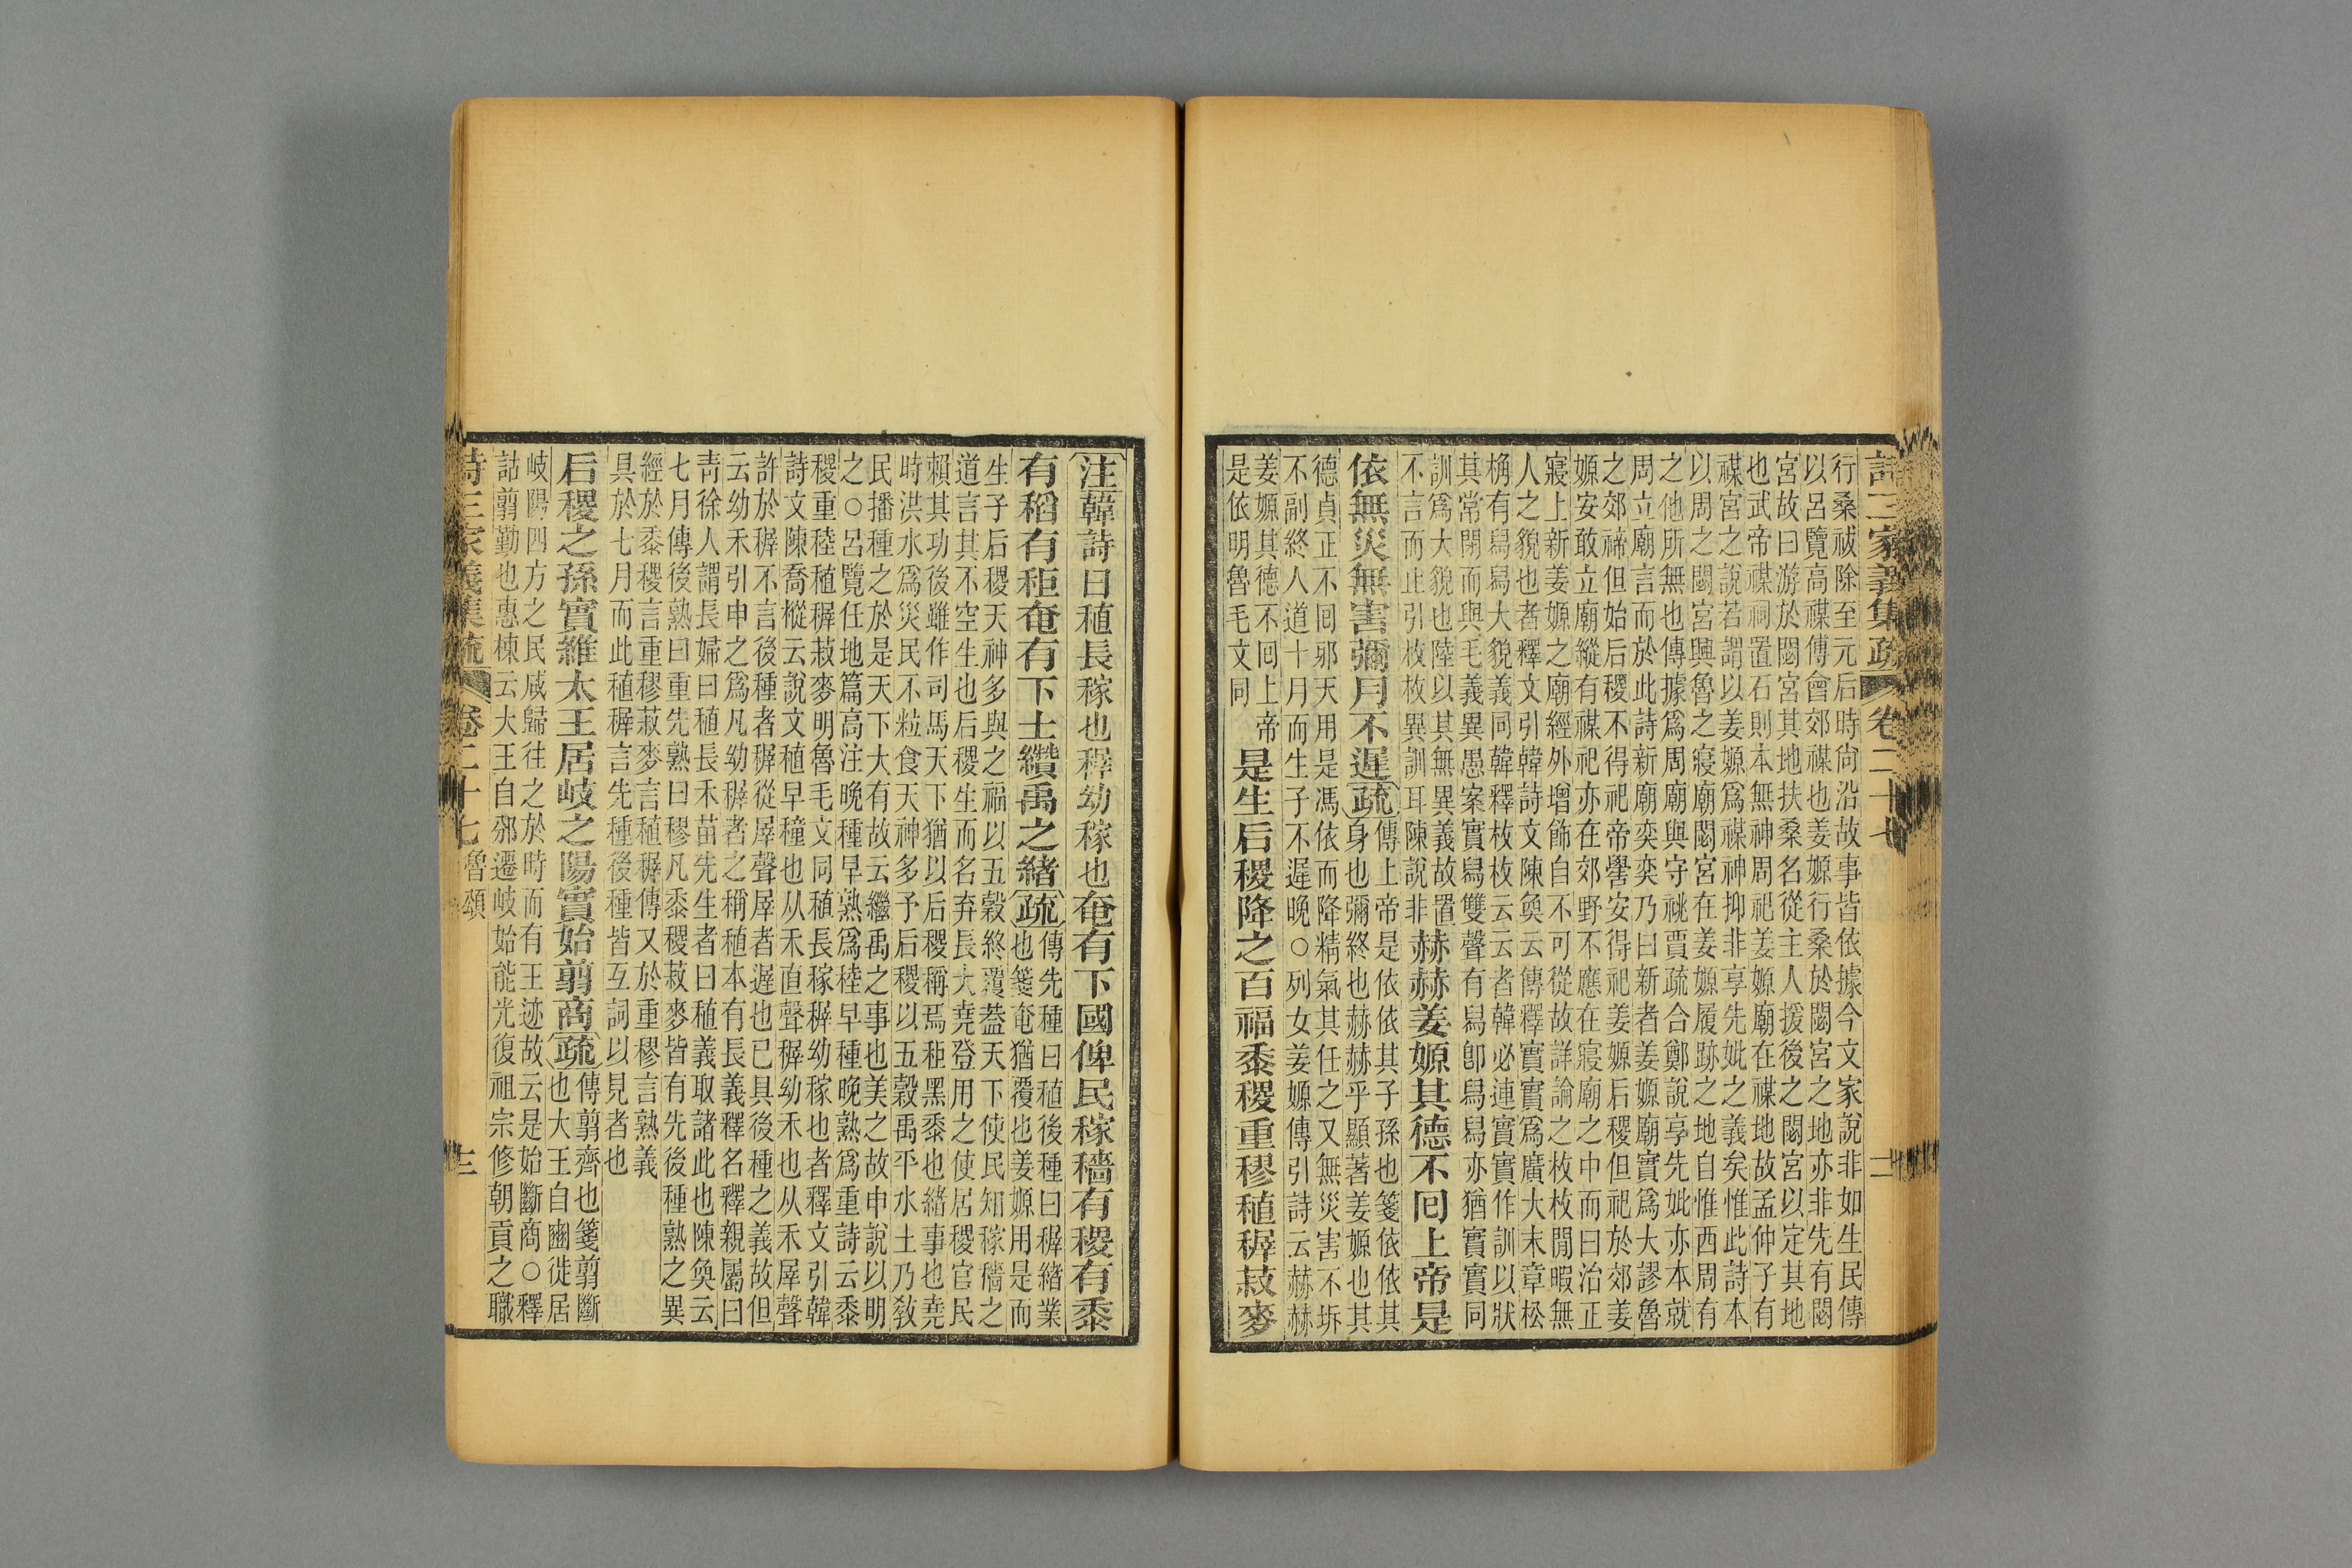 詩三家義集疏 卷二十七 二
行桑祓除至元后時尙沿故事皆依據今文家說非如生民傳
以呂覽高禖傅會郊禖也姜嫄行桑於閟宮之地亦非先有閟
宮故曰游於閟宮其地扶桑名從主人援後之閟宮以定其地
也武帝禖祠置石則本無神周祀姜嫄廟在禖地故孟仲子有
禖宮之說若謂以姜嫄爲禖神抑非享先妣之義矣惟此詩本
以周之閟宮興魯之寢廟閟宮在姜嫄履跡之地自惟西周有
之他所無也傳據爲周廟與守祧賈疏合鄭說享先妣亦本就
周立廟言而於此詩新廟奕奕乃曰新者姜嫄廟實爲大謬魯
之郊禘但始后稷不得祀帝嚳安得祀姜嫄后稷但祀於郊姜
嫄安敢立廟縱有禖祀亦在郊野不應在寢廟之中而曰治正
寢上新姜嫄之廟經外增飾自不可從故詳論之枚枚閒暇無
人之貌也者釋文引韓詩文陳奐云傳釋實實爲廣大末章松
桷有舄舄大貌義同韓釋枚枚云云者韓必連實實作訓以狀
其常閉而與毛義異愚案實舄雙聲有舄卽舄舄亦猶實實同
訓爲大貌也陸以其無異義故置
不言而止引枚枚異訓耳陳說非
赫赫姜嫄其德不囘上帝是
依無災無害彌月不遲疏
傳上帝是依依其子孫也箋依依其
身也彌終也赫赫乎顯著姜嫄也其
德貞正不囘邪天用是馮依而降精氣其任之又無災害不坼
不副終人道十月而生子不遲晚○列女姜嫄傳引詩云赫赫
姜嫄其德不囘上帝
是依明魯毛文同
是生后稷降之百福黍稷重穋稙穉菽麥
注韓詩曰稙長稼也穉幼稼也奄有下國俾民稼穡有稷有黍
有稻有秬奄有下土纘禹之緖疏
傳先種曰稙後種曰穉緖業
也箋奄猶覆也姜嫄用是而
生子后稷天神多與之福以五穀終覆葢天下使民知稼穡之
道言其不空生也后稷生而名弃長大堯登用之使居稷官民
賴其功後雖作司馬天下猶以后稷稱焉秬黑黍也緖事也堯
時洪水爲災民不粒食天神多予后稷以五穀禹平水土乃敎
民播種之於是天下大有故云繼禹之事也美之故申說以明
之○呂覽任地篇高注晚種早熟爲稑早種晚熟爲重詩云黍
稷重稑稙穉菽麥明魯毛文同稙長稼穉幼稼也者釋文引韓
詩文陳喬樅云說文稙早穜也从禾直聲穉幼禾也从禾犀聲
許於穉不言後種者穉從犀聲犀者遲也已具後種之義故但
云幼禾引申之爲凡幼穉者之稱稙本有長義釋名釋親屬曰
靑徐人謂長婦曰稙長禾苗先生者曰稙義取諸此也陳奐云
七月傳後熟曰重先熟曰穋凡黍稷菽麥皆有先後種熟之異
經於黍稷言重穋菽麥言稙穉傳又於重穋言熟義
具於七月而此稙穉言先種後種皆互詞以見者也
后稷之孫實維大王居岐之陽實始翦商疏
傳翦齊也箋翦斷
也大王自豳徙居
岐陽四方之民咸歸往之於時而有王迹故云是始斷商○釋
詁翦勤也惠棟云大王自邠遷岐始能光復祖宗修朝貢之職
詩三家義集疏 卷二十七 魯頌 三